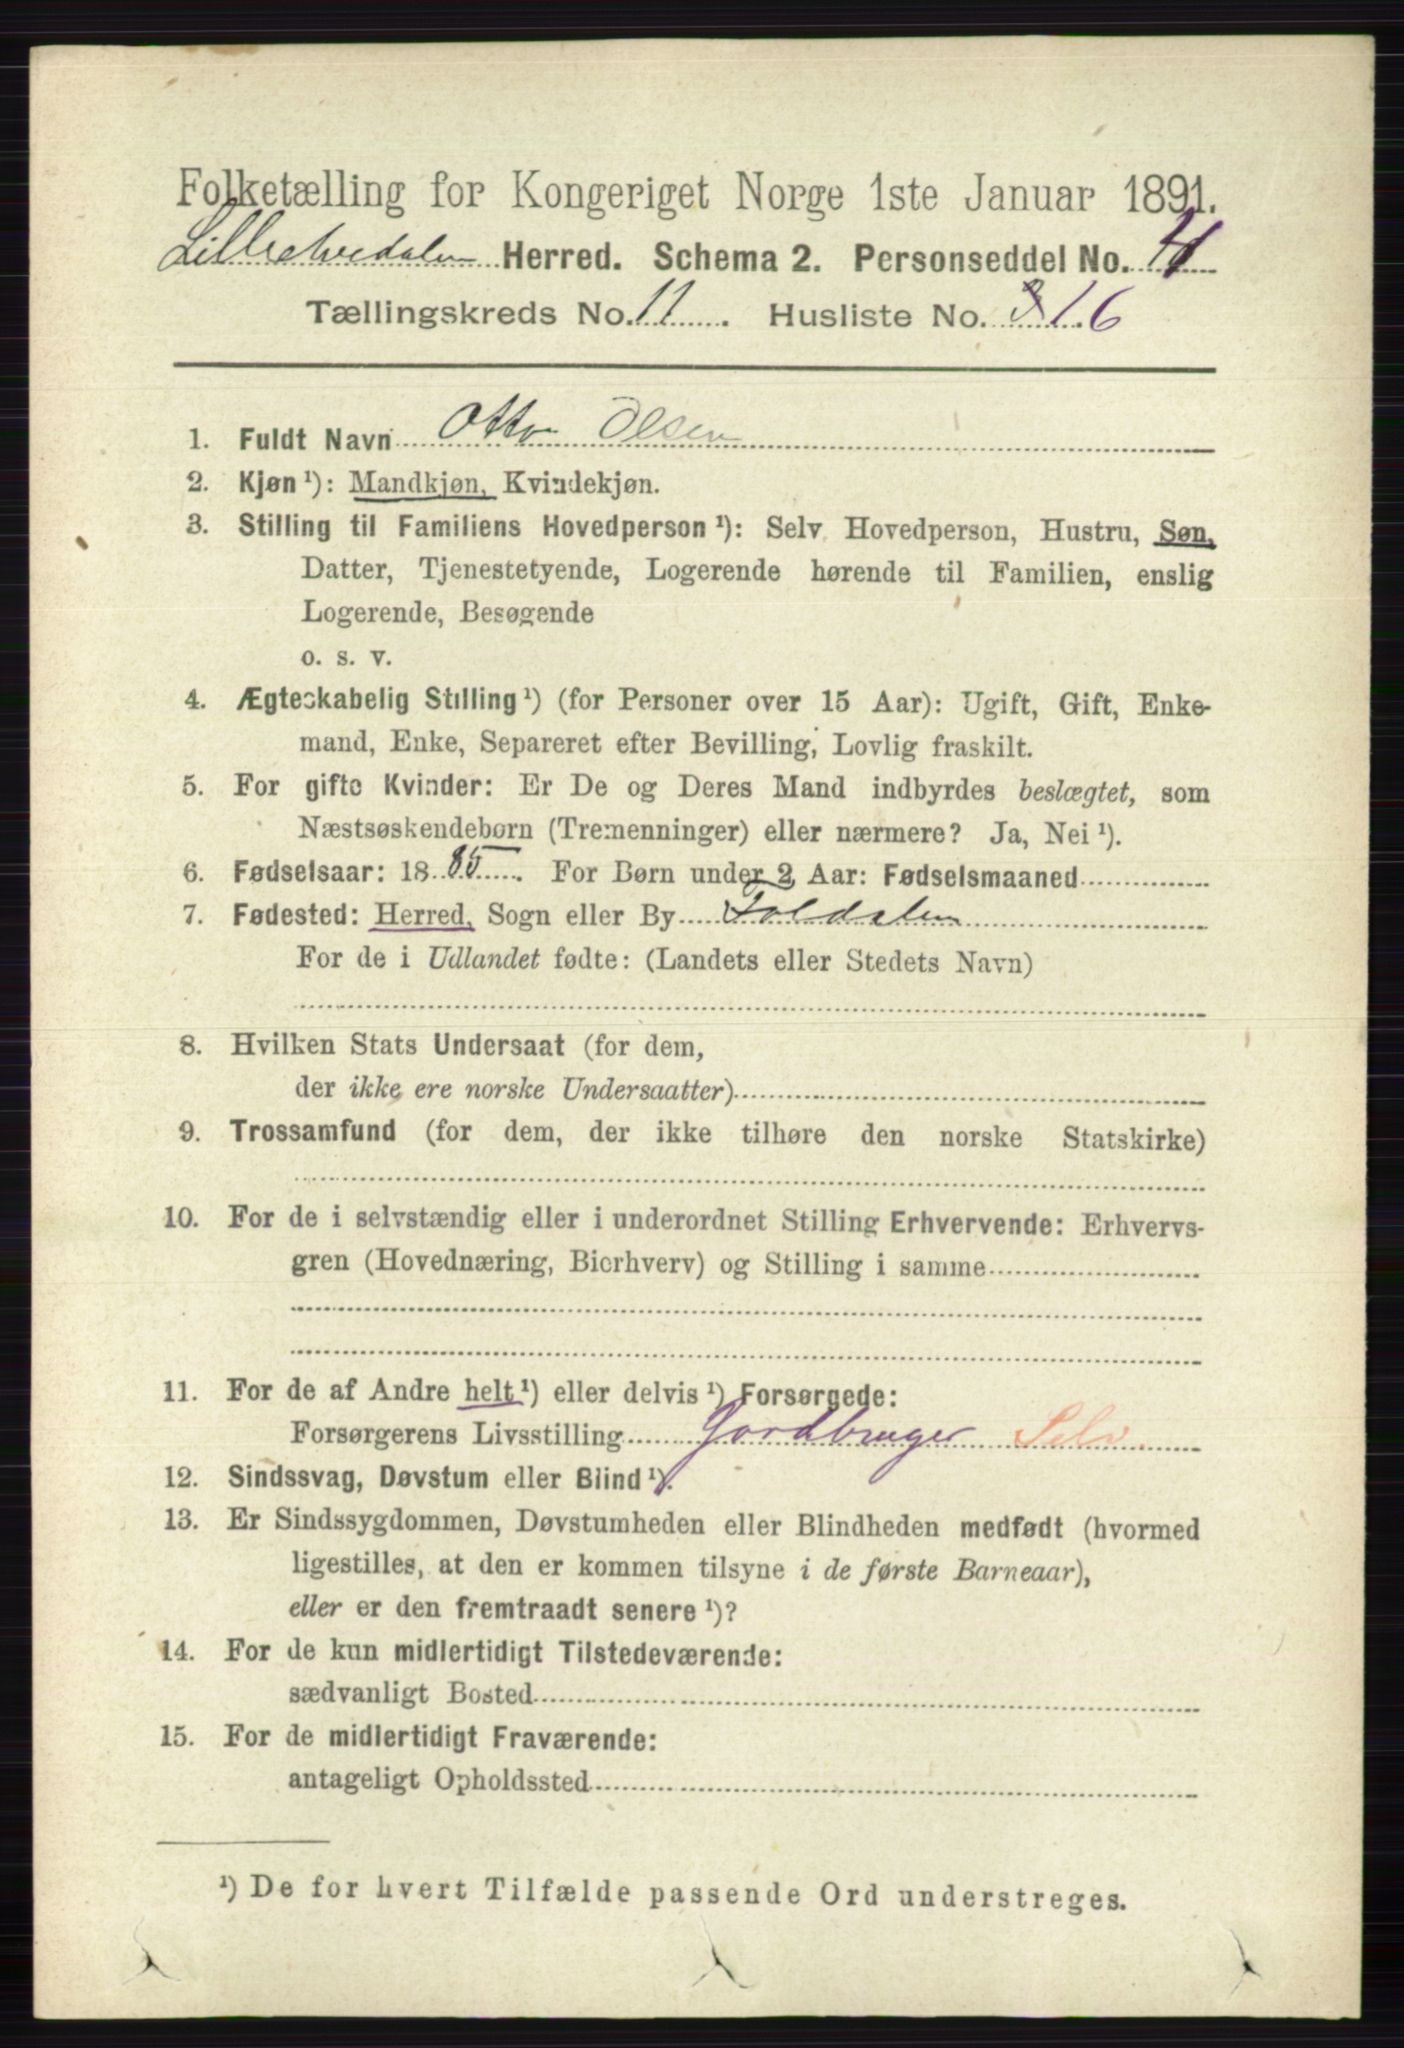 Folketælling for Kongeriget Norge 1ste Januar 1891.
Lilleelvedalen Herred. Schema 2. Personseddel No. 4
Tællingskreds No. 11. Husliste No. 16
1. Fuldt Navn Otto Olsen
2. Kjøn ¹): Mandkjøn, Kvindekjøn.
3. Stilling til Familiens Hovedperson ¹): Selv Hovedperson, Hustru, Søn,
Datter, Tjenestetyende, Logerende hørende til Familien, enslig
Logerende, Besøgende
o. s. v.
4. Ægteskabelig Stilling ¹) (for Personer over 15 Aar): Ugift, Gift, Enke-
mand, Enke, Separeret efter Bevilling, Lovlig fraskilt.
5. For gifte Kvinder: Er De og Deres Mand indbyrdes beslægtet, som
Næstsøskendebørn (Tremenninger) eller nærmere? Ja, Nei ¹).
6. Fødselsaar: 1885. For Børn under 2 Aar: Fødselsmaaned
7. Fødested: Herred, Sogn eller By Foldalen
For de i Udlandet fødte: (Landets eller Stedets Navn)
8. Hvilken Stats Undersaat (for dem,
der ikke ere norske Undersaatter)
9. Trossamfund (for dem, der ikke tilhøre den norske Statskirke)
10. For de i selvstændig eller i underordnet Stilling Erhvervende: Erhvervs-
gren (Hovednæring, Bierhverv) og Stilling i samme
11. For de af Andre helt ¹) eller delvis ¹) Forsørgede:
Forsørgerens Livsstilling Gordbruger Selv.
12. Sindssvag, Døvstum eller Blind ¹).
13. Er Sindssygdommen, Døvstumheden eller Blindheden medfødt (hvormed
ligestilles, at den er kommen tilsyne i de første Barneaar),
eller er den fremtraadt senere ¹)?
14. For de kun midlertidigt Tilstedeværende:
sædvanligt Bosted
15. For de midlertidigt Fraværende:
antageligt Opholdssted
¹) De for hvert Tilfælde passende Ord understreges.